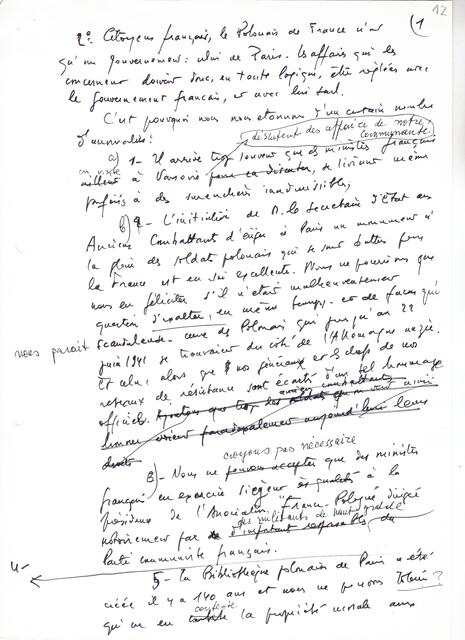 12
(1
2°. Citoyens français, le Polonais de France n'a
qu'un Gouvernement : celui de Paris. Les affaires qui les
concernent doivent donc, en toute logique, être réglées avec
le Gouvernement français, et avec lui seul.
C'est pourquoi nous nous étonnons d'un certain nombre
d'anomalies :
discutent des affaires de notre
communauté
a) 1- Il arrive trop souvent que des ministres français
en visite
aillent à Varsovie pour en discuter, se livrant même
parfois à des surenchères inadmissibles,
b) 2- L'initiative de M. le Secrétaire d'Etat aux
Anciens Combattants d'ériger à Paris un monument à
la gloire des soldats polonais qui se sont battus pour
la France est en soi excellente. Nous ne pourrions que
nous en féliciter s'il n'était malheureusement
question d'exalter, en même temps - et de façon qui
nous paraît scandaleuse - ceux des Polonais qui jusqu'au 22
juin 1941 se trouvaient du côté de l'Allemagne nazie.
Et cela, alors que nos généraux et les chefs de nos
réseaux de résistance sont écartés d'un tel hommage
officiel.
anciens combattants
droits
croyons pas nécessaire
3)- Nous ne pouvons accepter que des ministres
français en exercice siègent ès qualités à la
présidence de l'Association "France-Pologne" dirigée
des militants de haut grade
notoirement par d'importants responsables du
Parti communiste français.
4-
5- La Bibliothèque polonaise de Paris a été
créée il y a 140 ans et nous ne pouvons tolérer ?
conteste
qu'on en la propriété morale aux